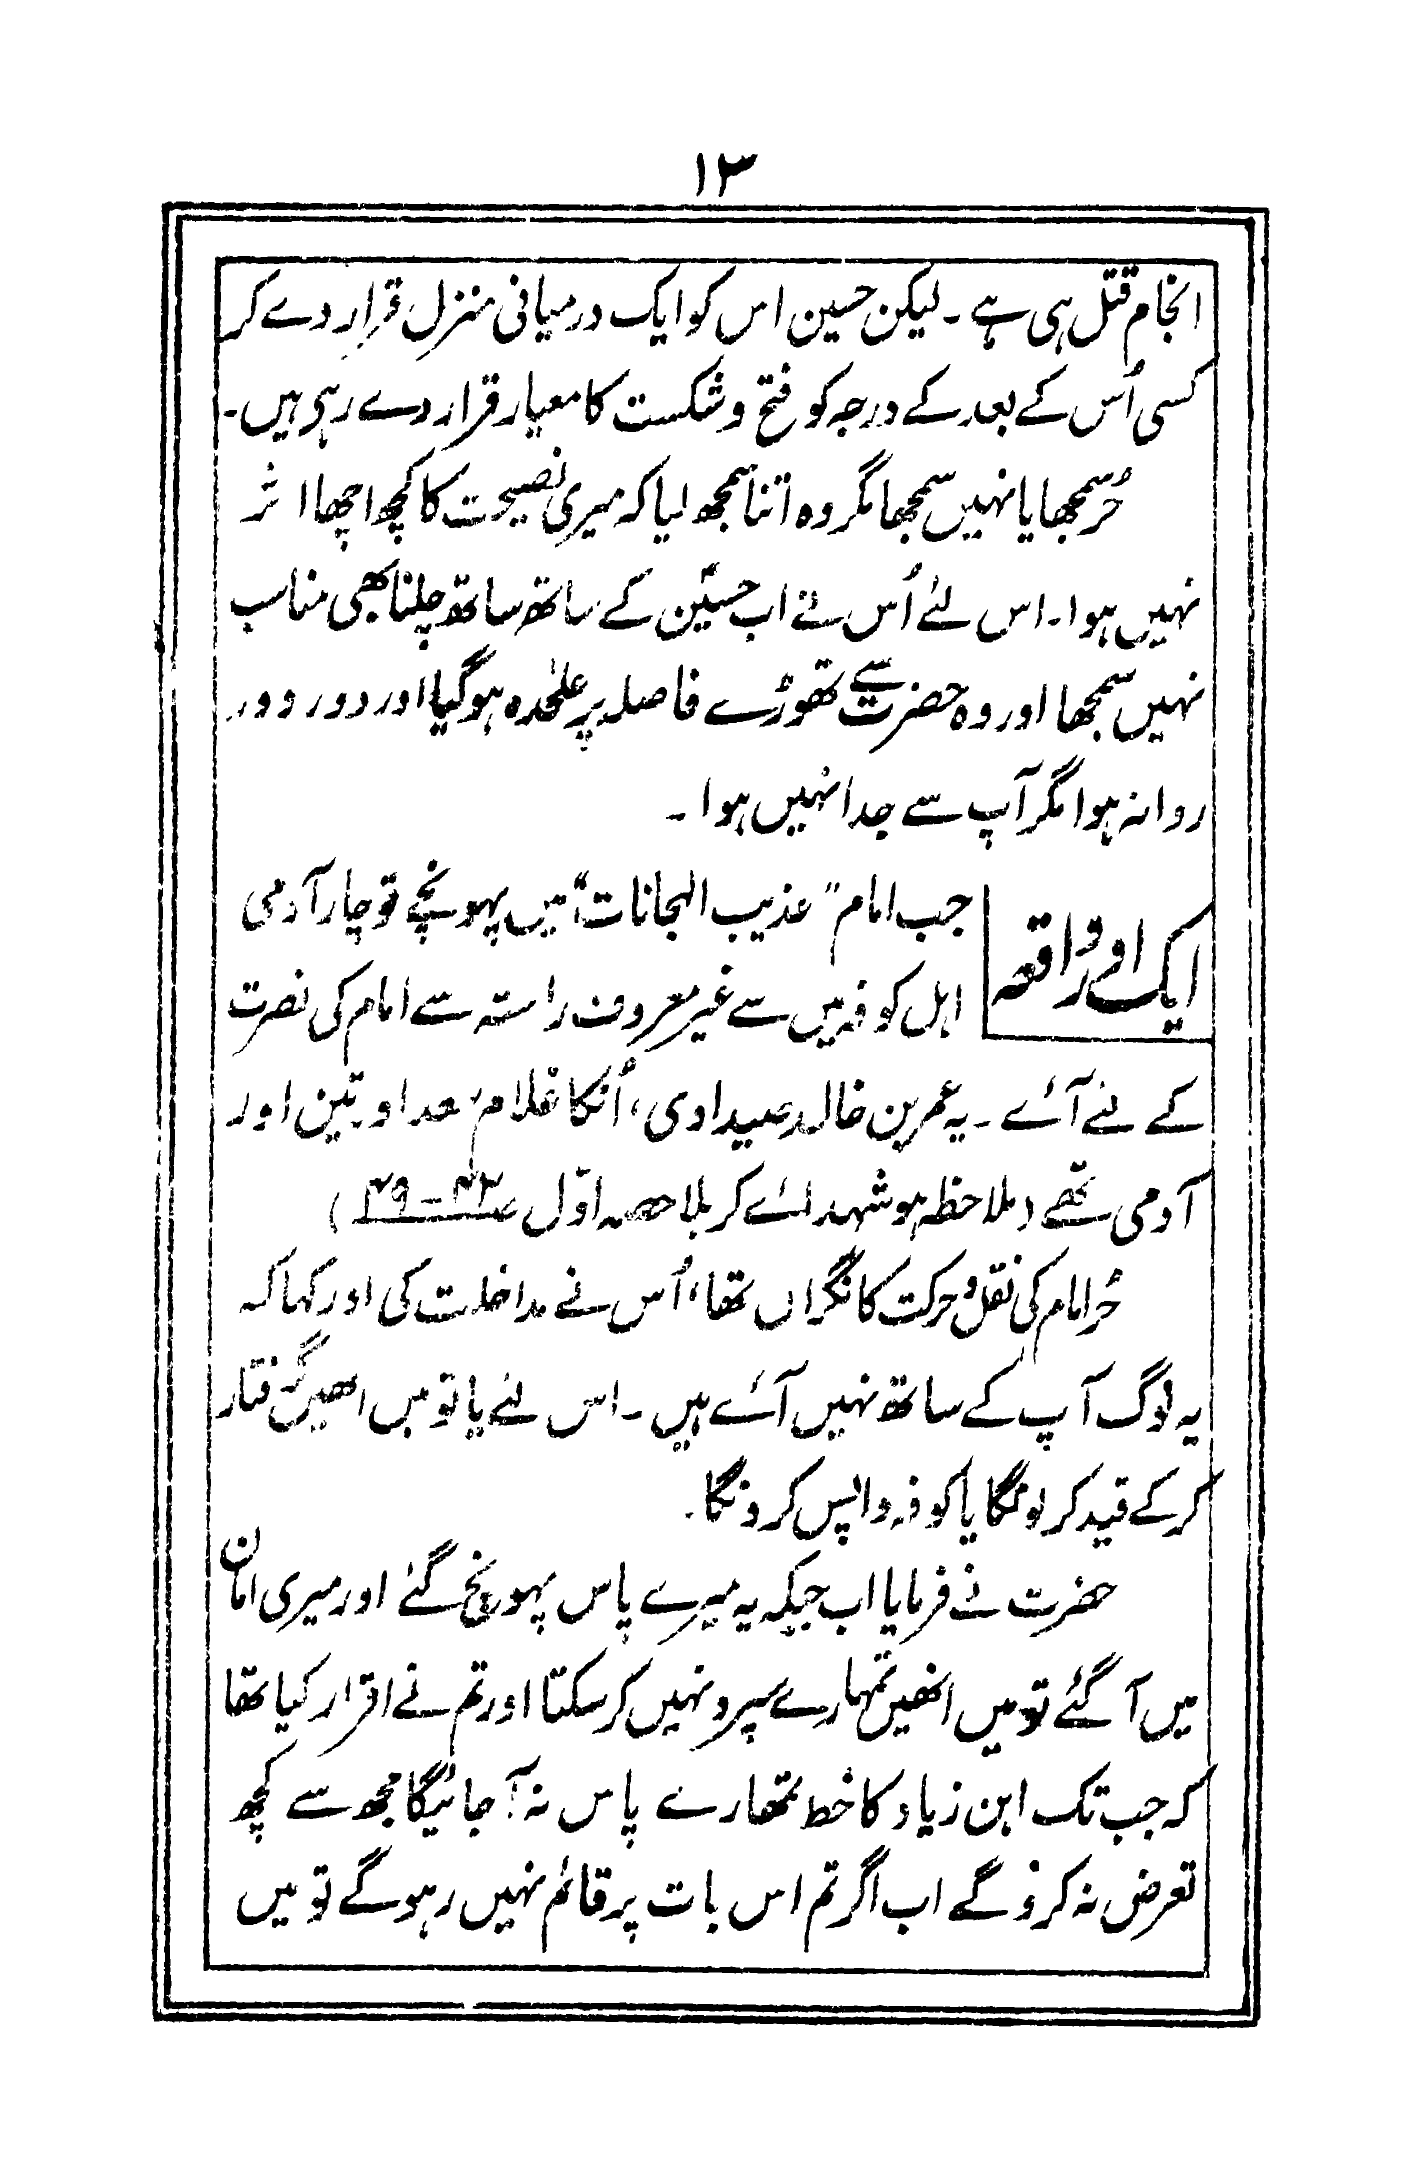 ۱۳
انجام قتل ہی ہے ۔ لیکن حسین اس کو ایک درمیانی منزل قرار دے کر
کسی اُس کے بعد کے درجہ کو فتح و شکست کا معیار قرار دے رہی ہیں۔
حُر سمجھا یا نہیں سمجھا مگر وہ اتنا سمجھ لیا کہ میری نصیحت کا کچھ اچھا اثر
نہیں ہوا۔ اس لئے اُس نے اب حسینؑ کے ساتھ ساتھ چلنا بھی مناسب
نہیں سمجھا اور وہ حضرت سے تھوڑے فاصلہ پر علٰحدہ ہو گیا اور دور دور
روانہ ہوا مگر آپ سے جدا نہیں ہوا ۔
ایک اور واقعہ
جب امام "عذیب الہجانات" میں پہونچے تو چار آدمی
اہل کوفہ میں سے غیر معروف راستہ سے امام کی نصرت
کے لئے آئے ۔ یہ عمر بن خالد صیداوی، اُنکا غلام سعد اور تین اور
آدمی تھے (ملاحظہ ہو شہدائے کربلا حصہ اوّل ۴۲ – ۴۹)
حُر امام کی نقل و حرکت کا نگراں تھا، اُس نے مداخلت کی اور کہا کہ
یہ لوگ آپ کے ساتھ نہیں آئے ہیں ۔ اس لئے یا تو میں انھیں گرفتار
کر کے قید کر لونگا یا کوفہ واپس کرونگا۔
حضرت نے فرمایا اب جبکہ یہ میرے پاس پہونچ گئے اور میری امان
میں آ گئے تو میں انھیں تمہارے سپرد نہیں کر سکتا اور تم نے اقرار کیا تھا
کہ جب تک ابن زیاد کا خط تمھارے پاس نہ آ جائیگا مجھ سے کچھ
تعرض نہ کرو گے اب اگر تم اس بات پر قائم نہیں رہو گے تو میں